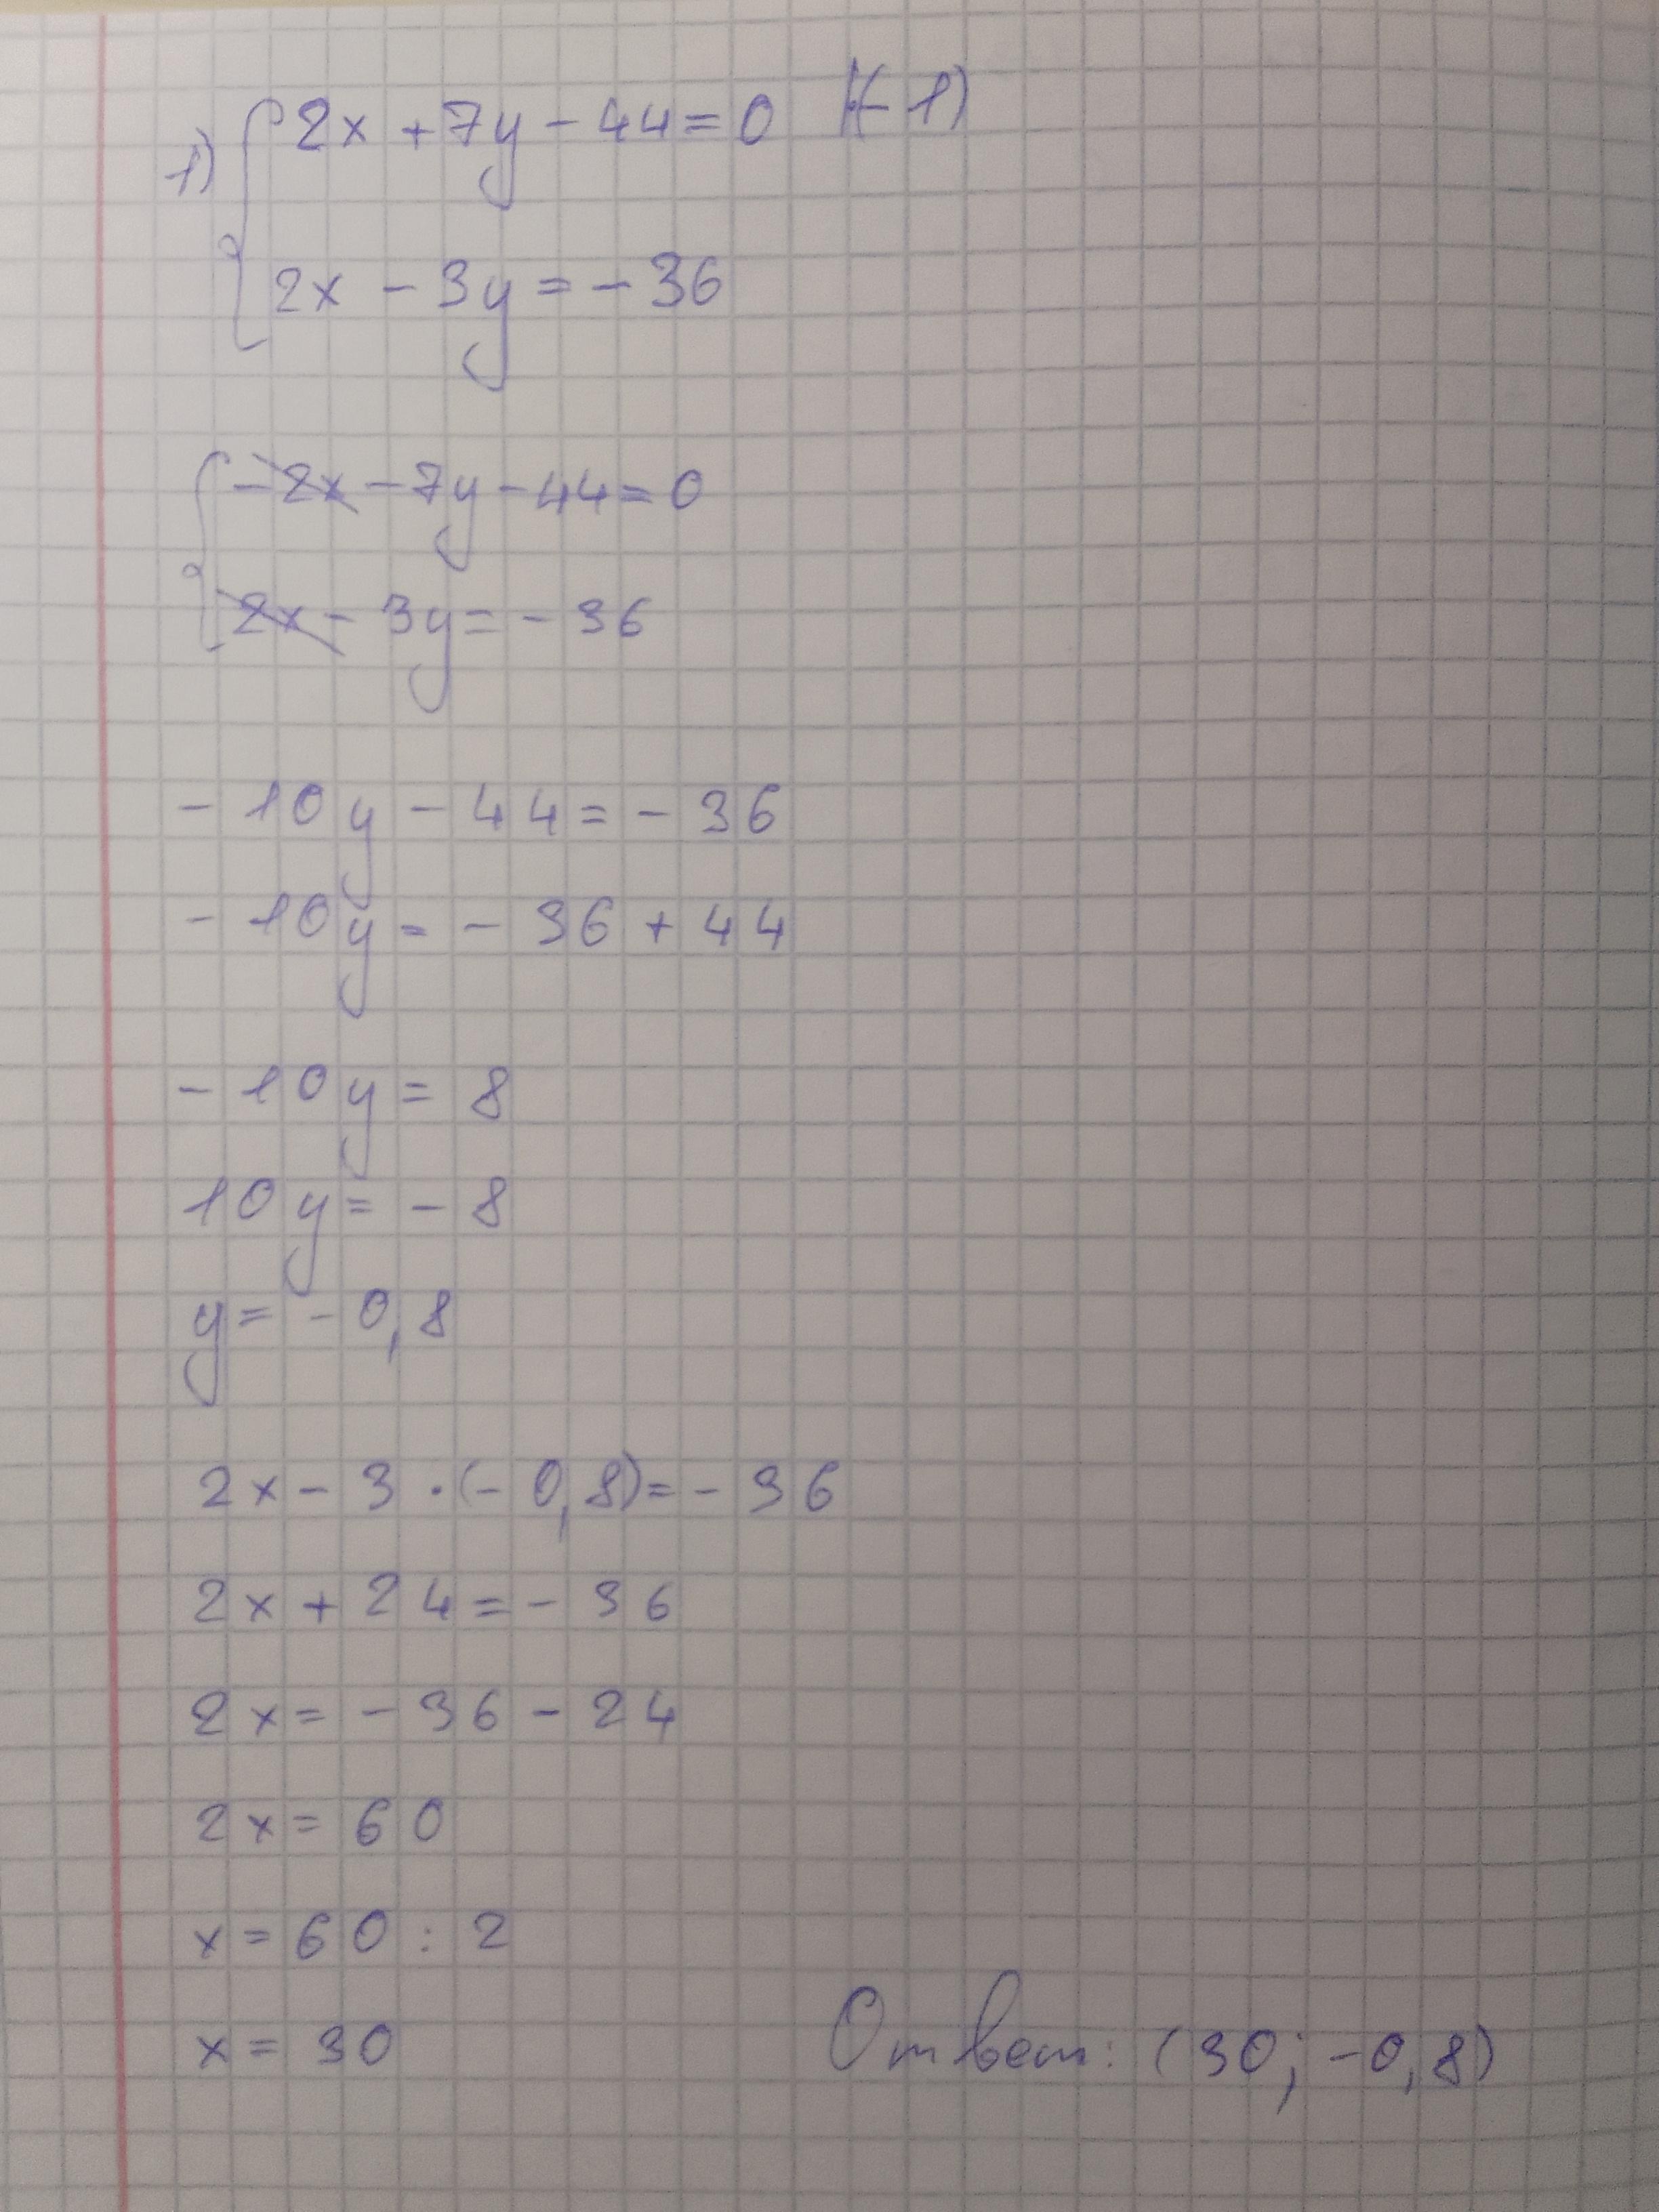 1) 2x + 7y - 44 = 0 |(-1)
2x - 3y = - 36
-2x - 7y - 44 = 0
2x - 3y = - 36
- 10y - 44 = - 36
- 10y = - 36 + 44
- 10y = 8
10y = - 8
y = - 0,8
2x - 3 · (- 0,8) = - 36
2x + 24 = - 36
2x = - 36 - 24
2x = 60
x = 60 : 2
x = 30
Ответ: (30; -0,8)